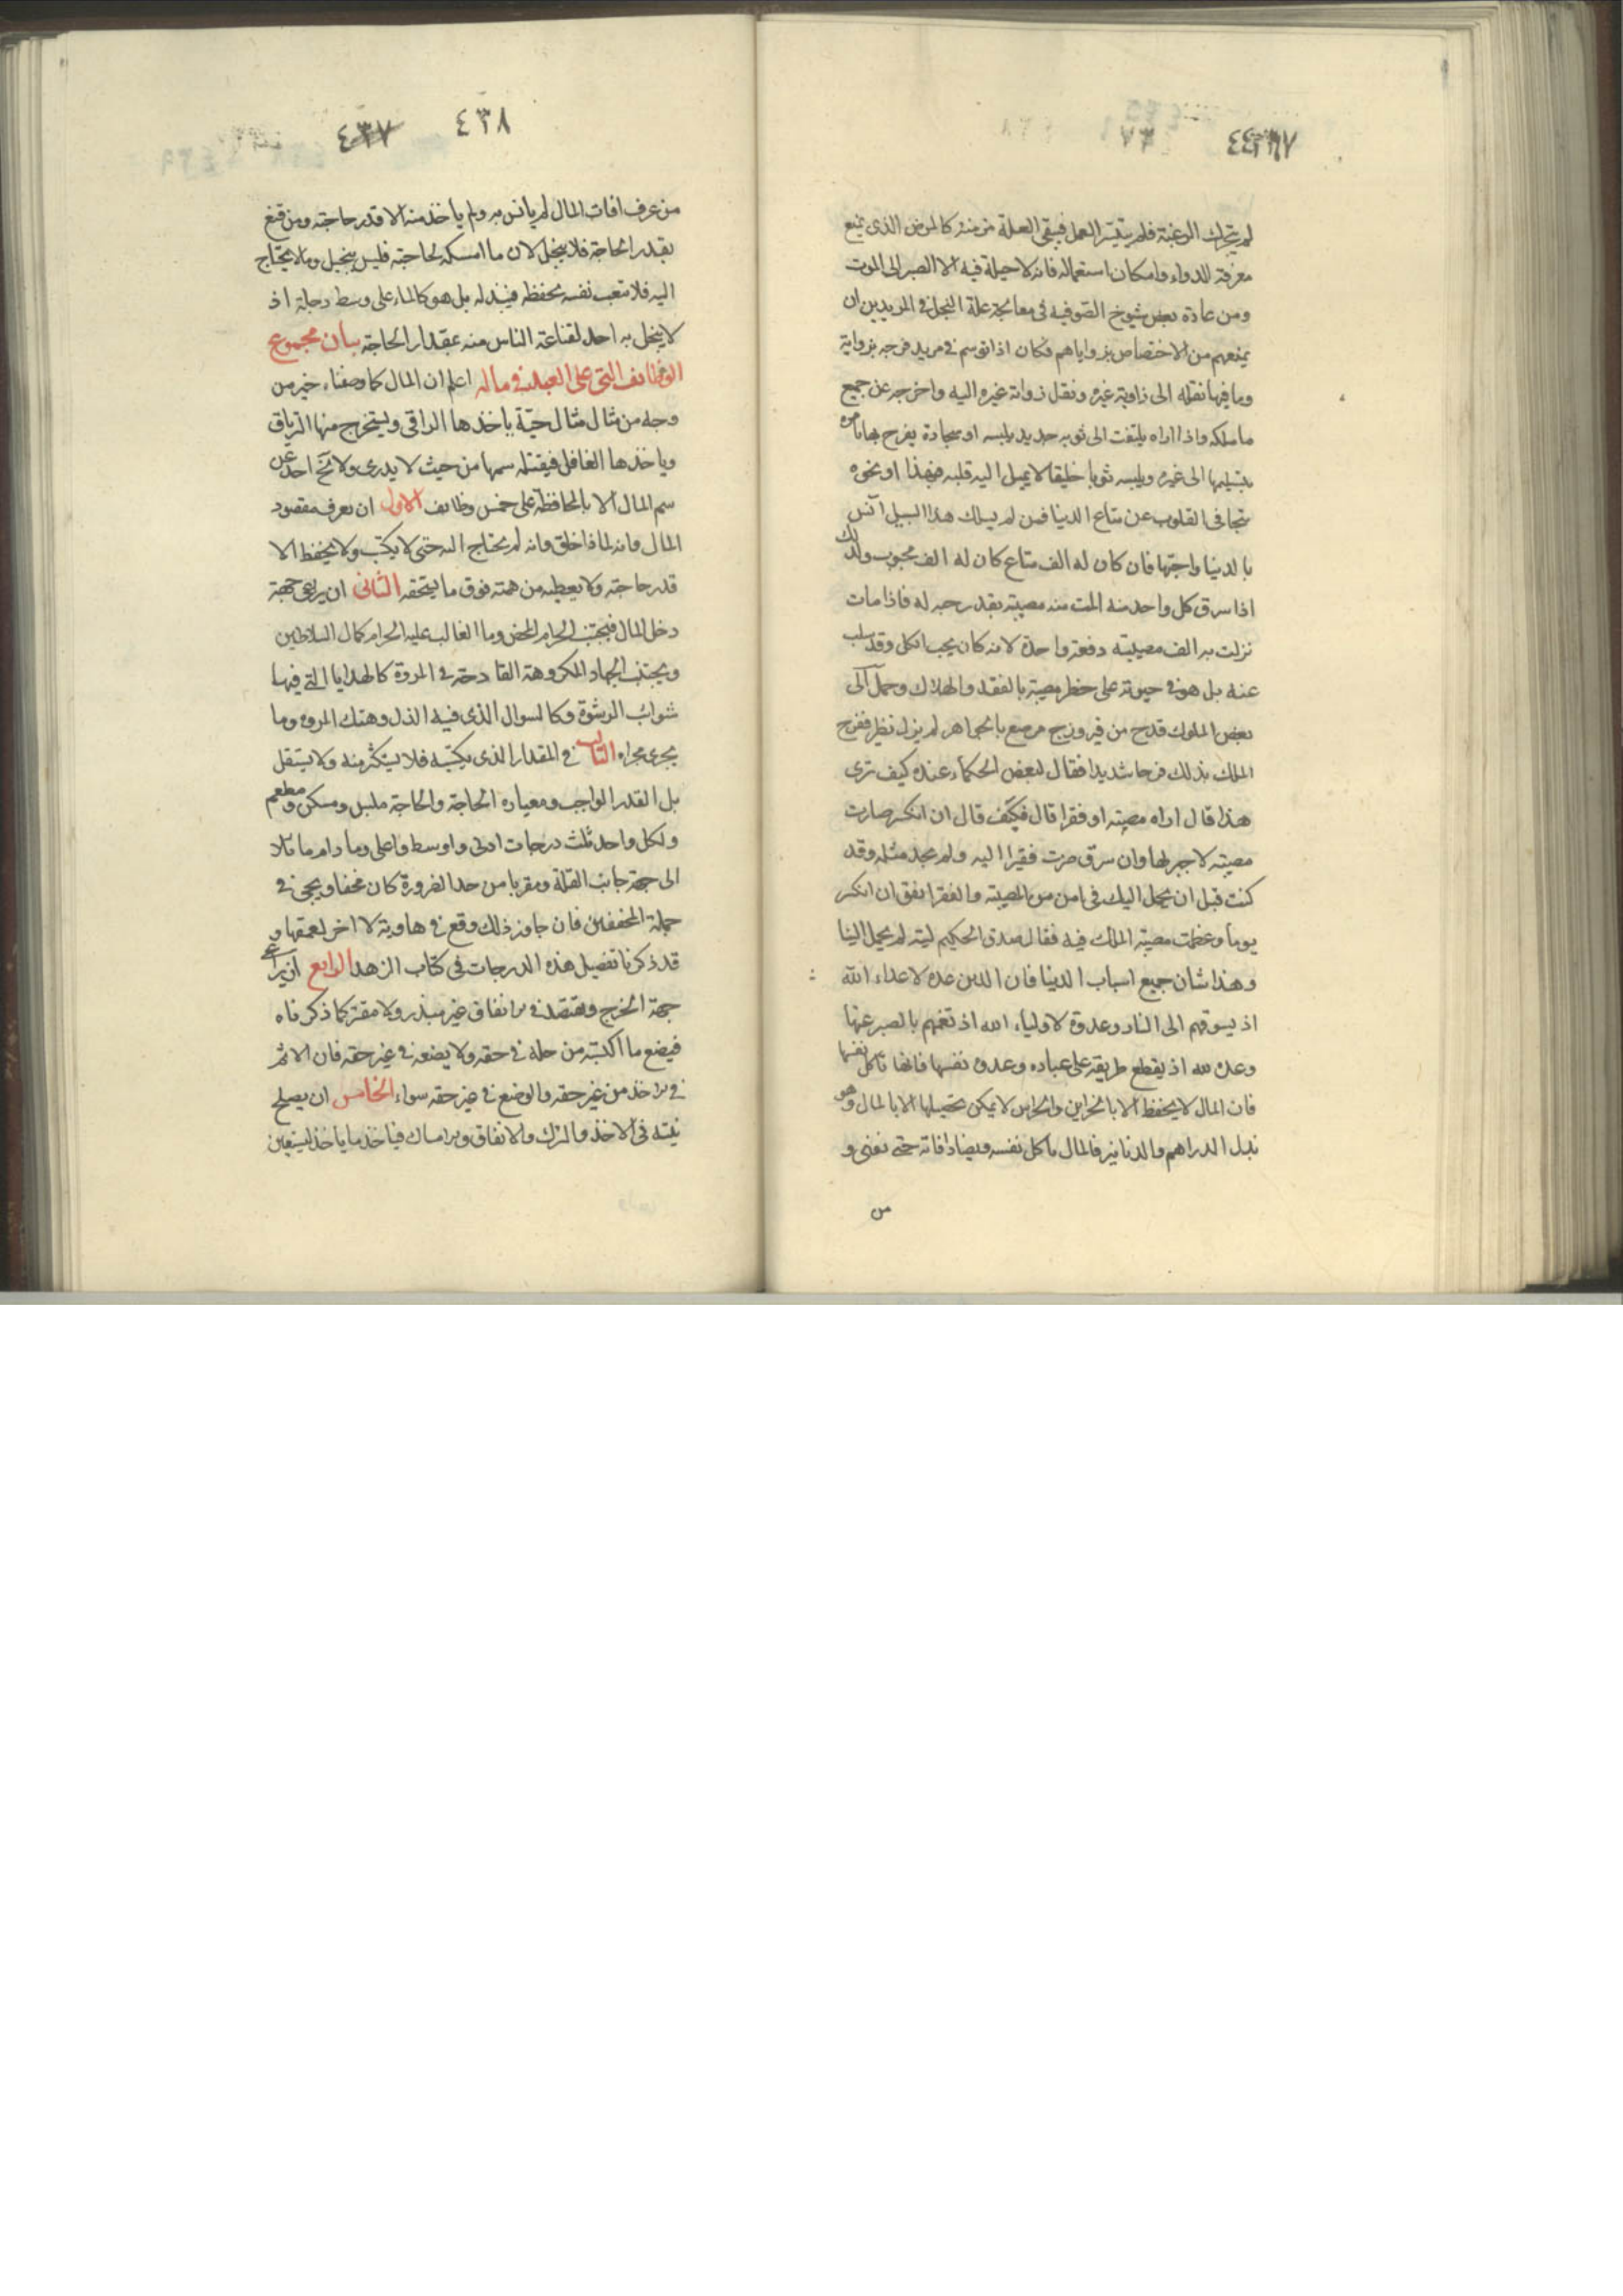 ٧٣
لم يتحرك الرغبة فلم يتيسر العمل فيبقى العلة مزمنة كالمرض الذى يمنع
معرفة للدواء وامكان استعماله فانه لا حيلة فيه الا الصبر الى الموت
ومن عادة بعض شيوخ الصوفيه فى معالجة علة البخل فى المريدين ان
يمنعهم من الاختصاص بزواياهم فكان اذا توسم فى مريد فرحه بزواية
وما فيها نقله الى زاوية غيره ونقل زواية غيره اليه واخرجه عن جميع
ما ملكه واذا اراه يلتفت الى ثوب جديد يلبسه او سجادة يفرح بها يامره
بتسليمها الى غيره ويلبسه ثوبا خليقا لا يميل اليه قلبه فبهذا او نحوه
يتجافى القلوب عن متاع الدنيا فمن لم يسلك هذا السبيل آنس
بالدنيا واحبها فان كان له الف متاع كان له الف محبوب ولذلك
اذا سرق كل واحد منه المت منه مصيبة بقدر حبه له فاذا مات
نزلت به الف مصيبة دفعة واحدة لانه كان يحب الكل وقد سلب
عنه بل هو فى حيوته على خطر مصيبة بالفقد والهلاك وحمل الى
بعض الملوك قدح من فيروزج مرصع بالجواهر لم ير له نظير ففرح
الملك بذلك فرحا شديدا فقال لبعض الحكماء عنده كيف ترى
هذا قال اراه مصيبة او فقرا قال فكيف قال ان انكسر صارت
مصيبة لا جبر لها وان سرق صرت فقيرا اليه ولم تجد مثله وقد
كنت قبل ان يحمل اليك فى امن من المصيبة والفقر اتفق ان انكسر
يوما وعظمت مصيبة الملك فيه فقال صدق الحكيم ليته لم يحمل الينا
وهذا شان جميع اسباب الدنيا فان الدين عدة لاعداء الله
اذ يسوقهم الى النار وعدوة لاولياء الله اذ تغمهم بالصبر عنها
وعدوة لله اذ يقطع طريقه على عباده وعدوه نفسها فانها تاكل نفسها
فان المال لا يحفظ الا بالخزاين والحراس لا يمكن تحصيلها الا بالمال وهو
بذل الدراهم والدنانير فالمال ياكل نفسه ويضاد افاته حتى تفنى و
من
٤٣٨
٤٣٧
من عرف افات المال لم يانس به ولم ياخذ منه الا قدر حاجته ومن قنع
بقدر الحاجة فلا يبخل لان ما امسكه لحاجته فليس ببخيل وما لا يحتاج
اليه فلا متعب نفسه بحفظه فيبذله بل هو كالماء على وسط دجلة اذ
لا يبخل به احد لقناعة الناس منه بمقدار الحاجة بيان مجموع
الوظائف التى على العبد فى ماله اعلم ان المال كما وصفناه خير من
وجه من مثال مثال حيّة ياخذها الراقى ويستخرج منها الترياق
وياخذها الغافل فيقتله سمها من حيث لا يدرى ولا ينج احد عن
سم المال الا بالمحافظة على خمس وظايف الاول ان يعرف مقصود
المال وانه لماذا خلق وانه لم يحتاج اليه حتى لا يكتب ولا يحفظ الا
قدر حاجته ولا يعطيه من همته فوق ما يستحقه الثانى ان يراعى جهة
دخل المال فيجتنب الحرام المحض وما الغالب عليه الحرام كمال السلاطين
ويجتنب الجهاد المكروهة القادحة فى المروة كالهدايا التى فيها
شوائب الرشوة وكالسوال الذى فيه الذل وهتك المروه وما
يجرى مجراه الثالث فى المقدار الذى يكتسبه فلا يستكثر منه ولا يستقل
بل القدر الواجب ومعياره الحاجة والحاجة ملبس ومسكن ومطعم
ولكل واحد ثلث درجات ادنى واوسط واعلى وما دام مائلا
الى جهة جانب القلة ومقربا من حد الضرورة كان مخفا ويجئ فى
جملة المخففين فان جاوز ذلك وقع فى هاوية لا اخر لعمقها و
قد ذكرنا تفصيل هذه الدرجات فى كتاب الزهد الرابع ان يراعى
جهة الخرج ويقتصد فى الانفاق غير مبذر ولا مقتر كما ذكرناه
فيضع ما اكتسبه من حله فى حقه ولا يضعه فى غير حقه فان الاثم
فى الاخذ من غير حقه والوضع فى غير حقه سواء الخامس ان يصلح
نيته فى الاخذ والترك والانفاق والامساك فياخذ ما ياخذ ليستعين